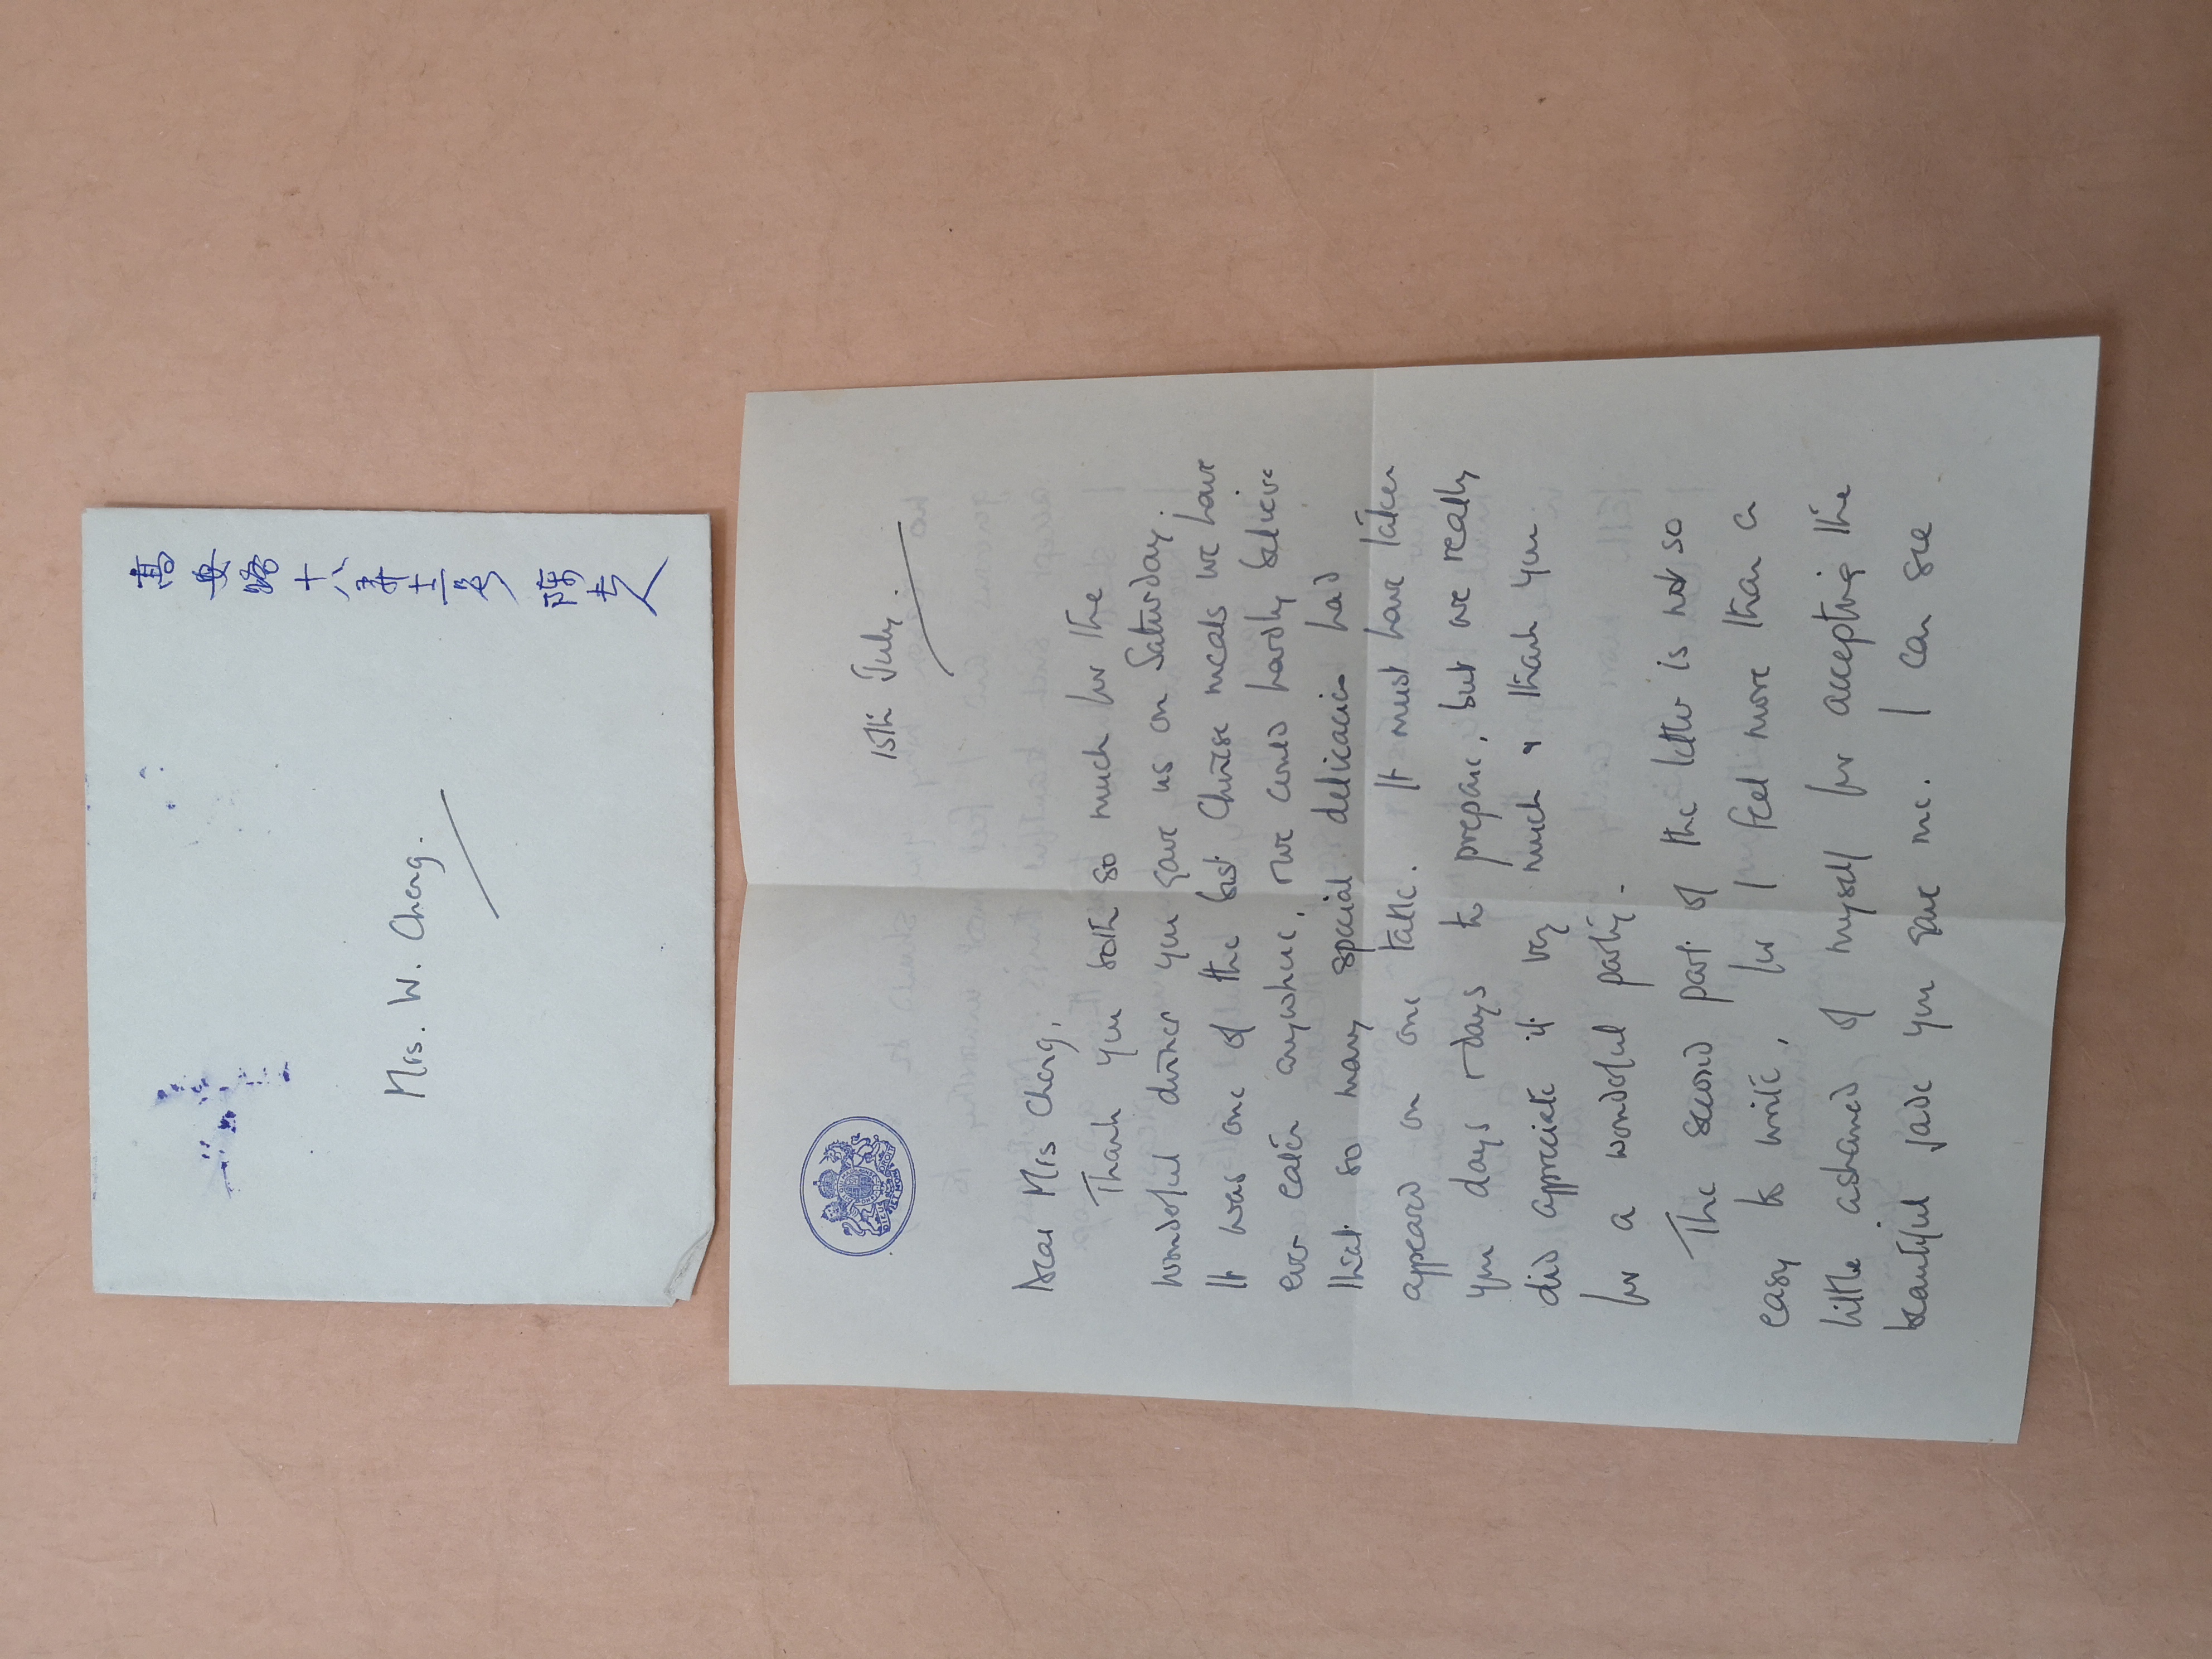 Mrs. W. Cheng.
高安路十八弄十二号
陈夫人
15th July.
Dear Mrs Cheng,
Thank you both so much for the
wonderful dinner you gave us on Saturday.
It was one of the best Chinese meals we have
ever eaten anywhere, & we could hardly believe
that so many special delicacies had
appeared on one table. It must have taken
you days & days to prepare, but we really
did appreciate it very much & thank you
for a wonderful party.
The second part of the letter is not so
easy to write, for I feel more than a
little ashamed of myself for accepting the
beautiful jade you gave me. I can see